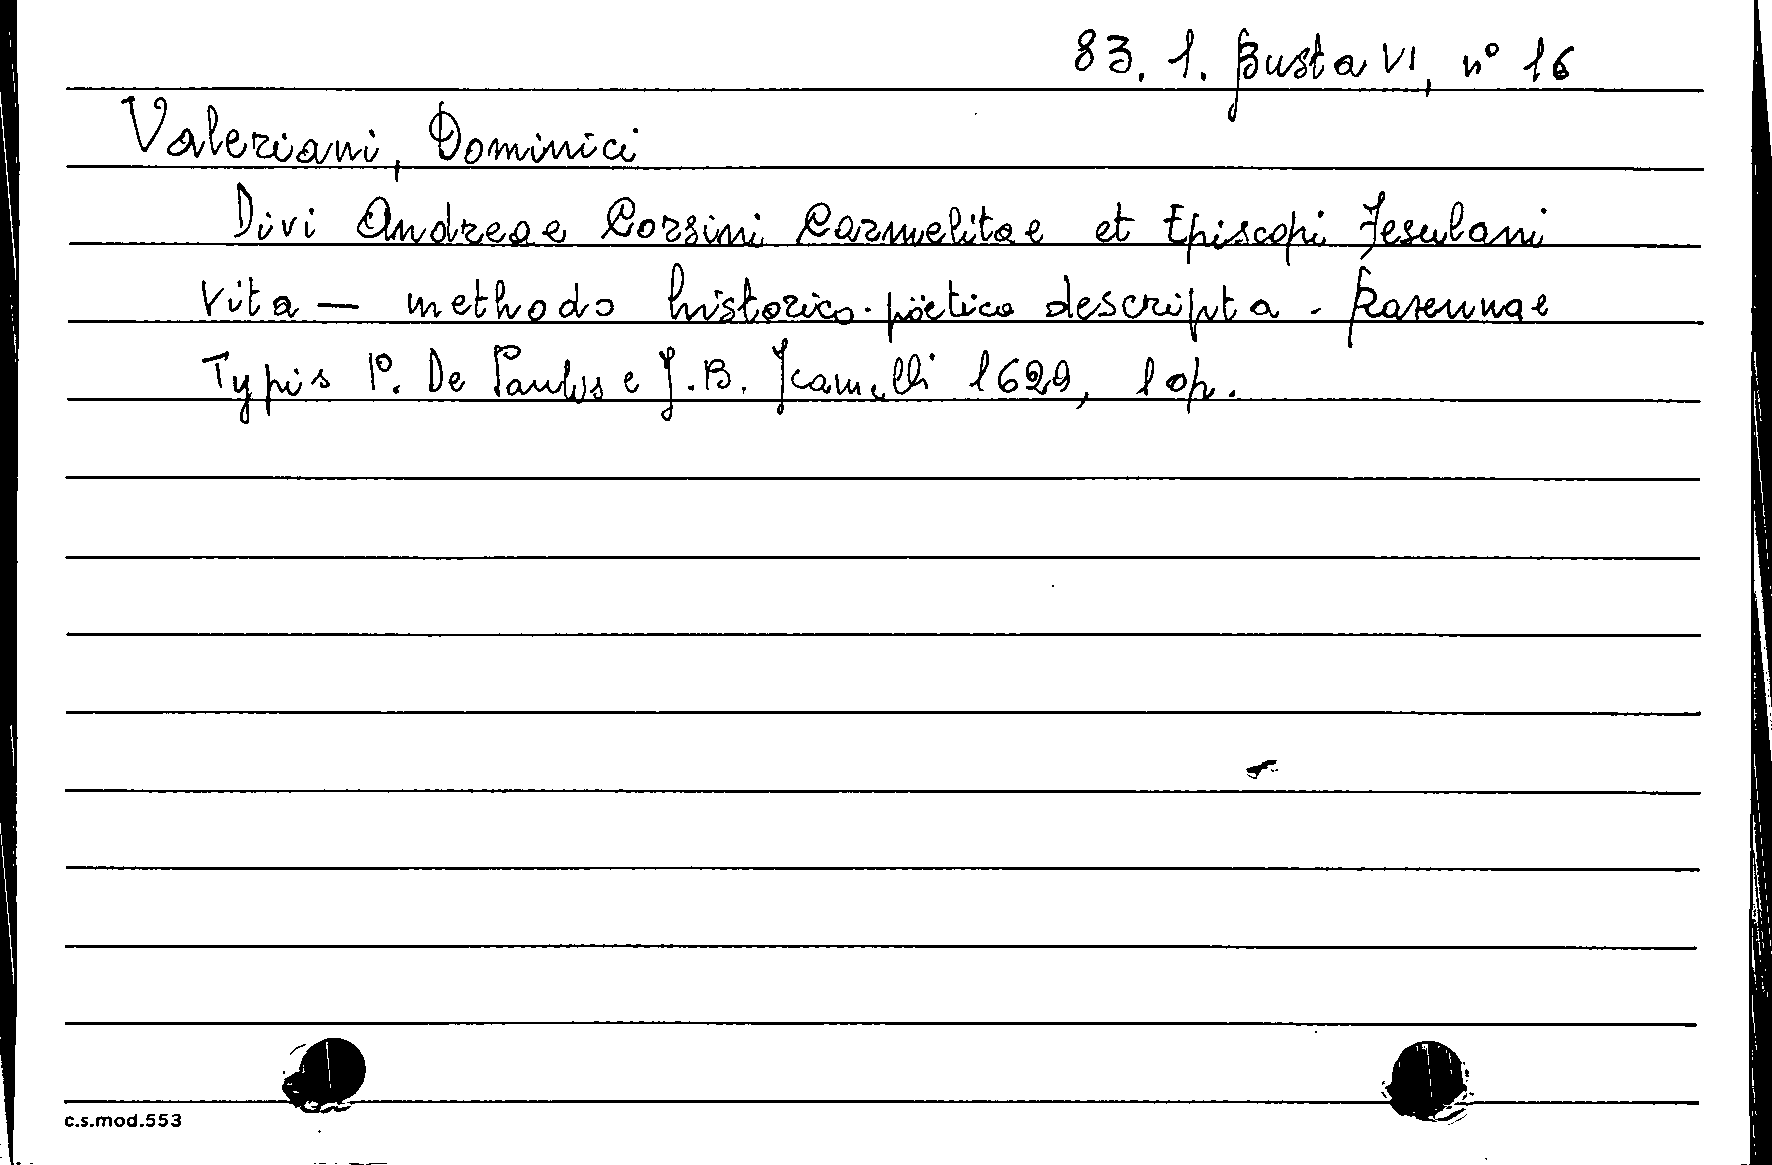 83. 1. Busta VI, n° 16
Valeriani, Dominici
Divi Andreae Corsini Carmelitae et Episcopi Fesulani
Vita — methodo historico-pöetica descripta. Ravennae
Typis P. De Paulis e J. B. 1629, 1 op.
c.s.mod.553